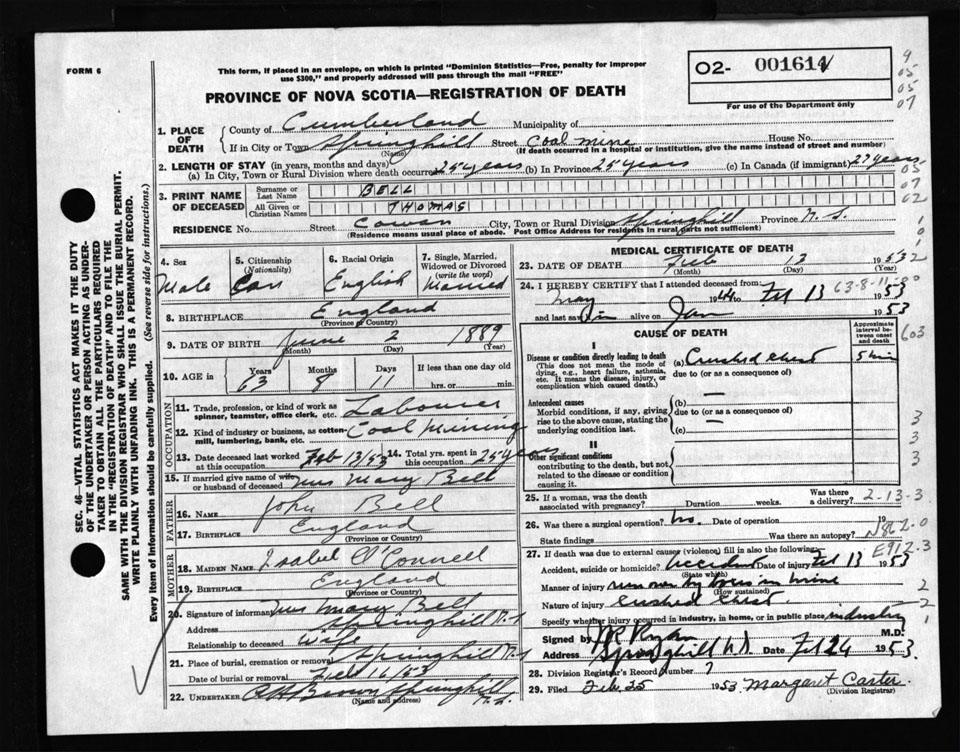 FORM 6
This form, if placed in an envelope, on which is printed "Dominion Statistics—Free, penalty for improper
use $300," and properly addressed will pass through the mail "FREE"
PROVINCE OF NOVA SCOTIA—REGISTRATION OF DEATH
O2- 001614
For use of the Department only
9
05
05
07
1. PLACE OF DEATH
County of Cumberland Municipality of
If in City or Town Springhill Street Coal mine House No.
(Name) (If death occurred in a hospital or institution, give the name instead of street and number)
2. LENGTH OF STAY (in years, months and days)
(a) In City, Town or Rural Division where death occurred 25 years (b) In Province 25 years (c) In Canada (if immigrant) 27 years
3. PRINT NAME OF DECEASED
Surname or Last Name BELL
All Given or Christian Names THOMAS
RESIDENCE No. Street Cowan City, Town or Rural Division Springhill Province N.S.
(Residence means usual place of abode. Post Office Address for residents in rural parts not sufficient)
05
07
02
4. Sex Male
5. Citizenship (Nationality) Can
6. Racial Origin English
7. Single, Married, Widowed or Divorced (write the word) Married
8. BIRTHPLACE England
(Province or Country)
9. DATE OF BIRTH June 2 1889
(Month) (Day) (Year)
10. AGE in Years Months Days If less than one day old
63 8 11 hrs. or min.
OCCUPATION
11. Trade, profession, or kind of work as spinner, teamster, office clerk, etc. Labourer
12. Kind of industry or business, as cotton-mill, lumbering, bank, etc. Coal Mining
13. Date deceased last worked at this occupation Feb 13/53 14. Total yrs. spent in this occupation 25 years
15. If married give name of wife or husband of deceased Mrs Mary Bell
FATHER
16. Name John Bell
17. Birthplace England
(Province or Country)
MOTHER
18. MAIDEN NAME Isabel O'Connell
19. BIRTHPLACE England
(Province or Country)
20. Signature of informant Mrs Mary Bell
Address Springhill N.S
Relationship to deceased wife
21. Place of burial, cremation or removal Springhill N.S
Date of burial or removal Feb 16/53
22. UNDERTAKER Brown Springhill N.S.
(Name and address)
MEDICAL CERTIFICATE OF DEATH
23. DATE OF DEATH Feb 13 1953
(Month) (Day) (Year)
24. I HEREBY CERTIFY that I attended deceased from:
May 1944 to Feb 13 1953
63-8-11
and last saw him alive on Jan 1953
CAUSE OF DEATH
Approximate interval between onset and death
603
I
Disease or condition directly leading to death (a) Crushed Chest 5 min
(This does not mean the mode of dying, e.g., heart failure, asthenia, etc. It means the disease, injury, or complication which caused death.)
due to (or as a consequence of)
Antecedent causes (b) —
Morbid conditions, if any, giving rise to the above cause, stating the underlying condition last.
due to (or as a consequence of)
(c) —
3
3
3
II
Other significant conditions
contributing to the death, but not related to the disease or condition causing it.
25. If a woman, was the death associated with pregnancy? Duration weeks. Was there a delivery? 2-13-3
26. Was there a surgical operation? no. Date of operation 19
State findings Was there an autopsy? N862.0
27. If death due to external causes (violence) fill in also the following: E912.3
Accident, suicide or homicide? Accident Date of injury Feb 13 1953
(State which)
Manner of injury run over by boxes in mine
(How sustained)
Nature of injury Crushed Chest.
Specify whether injury occurred in industry, in home, or in public place industry
2
2
1
Signed by Ryan M.D.
Address Springhill N.S Date Feb 24 1953.
28. Division Registrar's Record Number 7
29. Filed Feb 25 1953 Margaret Carter
(Division Registrar)
SEC. 46—VITAL STATISTICS ACT MAKES IT THE DUTY
OF THE UNDERTAKER OR PERSON ACTING AS UNDER-
TAKER TO OBTAIN ALL THE PARTICULARS REQUIRED
IN THE "REGISTRATION OF DEATH" AND TO FILE THE
SAME WITH THE DIVISION REGISTRAR WHO SHALL ISSUE THE BURIAL PERMIT.
WRITE PLAINLY WITH UNFADING INK. THIS IS A PERMANENT RECORD.
Every item of Information should be carefully supplied. (See reverse side for instructions.)